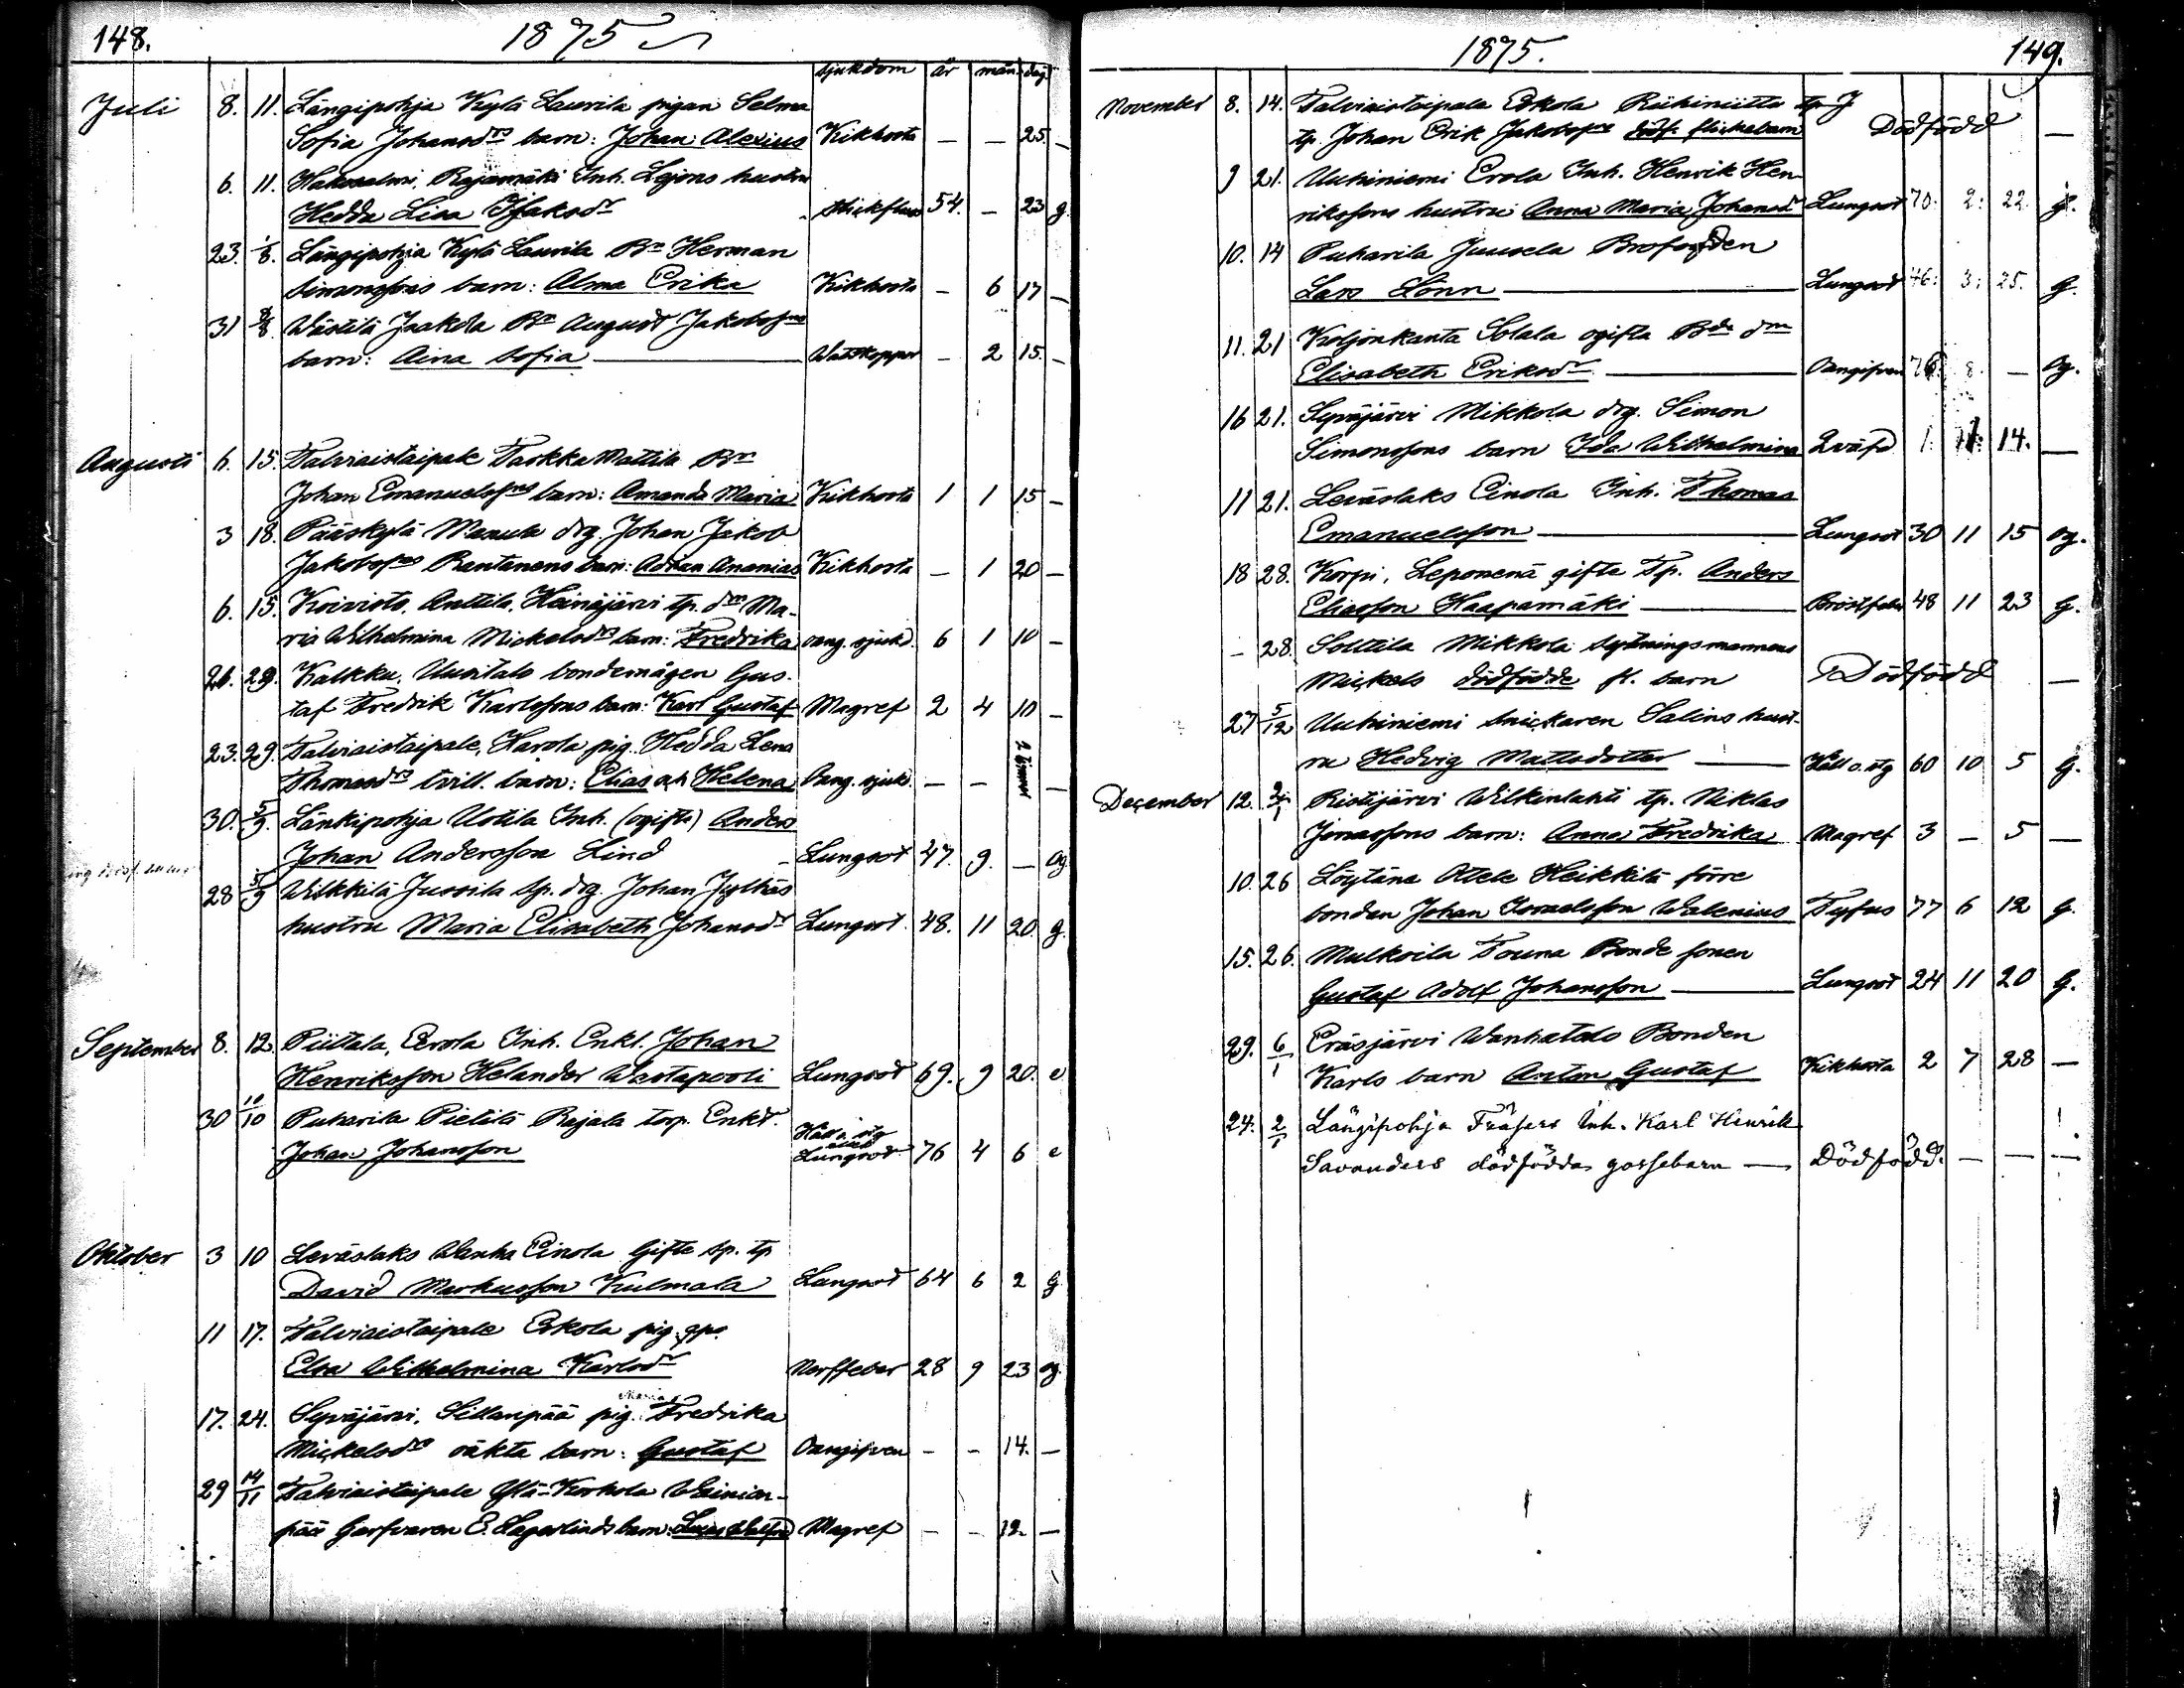 148.
1875
sjukdom år mån. dag
Juli 8. 11. Längipohja Kylä Laurila pigan Selma
Sofia Johansdrs barn: Johan Alexius Kikhosta — — 25. —
6. 11. Hakosalmi, Rajamäki Inh. Lejons hustru
Hedda Lisa Isaksdr 54. — 23 g
23. 1/8. Längipohja Kylä Laurila Bn Herman
Simonsons barn: Alma Erika Kikhosta — 6 17 —
31 8/8. Västilä Jaakola Bn August Jakobsons
barn: Aina Sofia Wattkoppor — 2 15. —
Augusti 6. 15. Talviaistaipale Taskka Mattila Bn
Johan Emanuelssons barn: Amanda Maria Kikhosta 1 1 15 —
3 18. Pääskylä Manula drg. Johan Jakob
Jakobsons Rantanens barn: Adrian Ananias Kikhosta — 1 20 —
6. 15. Koivisto, Anttila, Heinäjärvi tp. drn Ma-
ria Wilhelmina Mickelsdrs barn: Fredrika oang. sjukd. 6 1 10 —
26. 29. Kalkku, Uusitalo bondemågen Gus-
taf Fredrik Karlsons barn: Karl Gustaf Magref 2 4 10 —
23. 29. Talviaistaipale, Harola pig. Hedda Lena
Thomasdrs tvill. barn: Elias och Helena Oang. sjukd. — — 2 timmar —
30. 5/9. Länkipohja Uotila Inh. (ogifte) Anders
Johan Andersson Lind Lungsot 47. 9. — og
28 5/9 Wilkkilä Jussila sp. drg. Johan Jylhäs
hustru Maria Elisabeth Johansdr Lungsot. 48. 11 20. g.
September 8. 12. Piittala, Eerola Inh. Enkl. Johan
Henriksson Helander Wastapooli Lungsot 69. 9 20. e
30 10/10 Puharila Pietilä Rajala torp. Enkl.
Johan Johansson Håll o. stg eller Lungsot 76 4 6 e
Oktober 3 10 Leväslaks Wanha Einola Gifte sp. tp
David Markusson Kulmala Lungsot 64 6 2 g
11 17. Talviaistaipale Eskola pig.
Elsa Wilhelmina Karlsdr Nerffeber 28 9 23 og
17. 24. Syväjärvi, Sillanpää pig. Fredrika
Mickelsdrs oäkta barn: Gustaf Oangifven — — 14. —
29 14/11 Talviaistaipale Ylä-Koskola Wainion-
pää Garfvaren E. Lagerlinds barn: Magref — — 12. —
1875.
149.
November 8. 14. Talviaistaipala Eskola Riihiniitto tp.
tp. Johan Erik Jakobsons dödf. flickebarn Dödfödd —
9 21. Uuhiniemi Erola Inh. Henrik Hen-
riksons hustru Anna Maria Johansdr Lungsot 70. 2. 22 g.
10. 14 Puharila Juusela Brofogden
Lars Lönn Lungsot 46. 3. 25. g.
11. 21 Koljonkanta Solala ogifta Bdn drn
Elisabeth Eriksdr Oangifven 76. 8. — og.
16 21. Syväjärvi Mikkola drg. Simon
Simonsons barn Ida Wilhelmina Qväfd 1. 11. 14. —
11 21. Leväslaks Einola Inh. Thomas
Emanuelsson Lungsot 30 11 15 og.
18 28. Korpi, Leponenä gifte Tp. Anders
Eliasson Haapamäki Bröstfeber 48 11 23 g.
— 28. Solttila Mikkola Sytningsmannens
Mickels dödfödde fl. barn Dödfödd —
27 5/12 Uuhiniemi Snickaren Salins hust-
ru Hedvig Mattsdotter Håll o. stg 60 10 5 g.
December 12. Ristijärvi Wilkinlahti tp. Niklas
Jonassons barn: Anna Fredrika Magref 3 — 5 —
10. 26 Löytänä Ottele Heikkilä förre
bonden Johan Israelsson Walenius Tyfus 77 6 12 g.
15. 26. Mulkoila Touna Bonde sonen
Gustaf Adolf Johansson Lungsot 24 11 20 g.
29. 6/1 Eräsjärvi Wanhatalo Bonden
Karls barn Anton Gustaf Kikhosta 2 7 28 —
24. 2/1 Längipohja Fräsers Inh. Karl Henrik
Savanders dödfödda gossebarn — Dödfödd. — — —